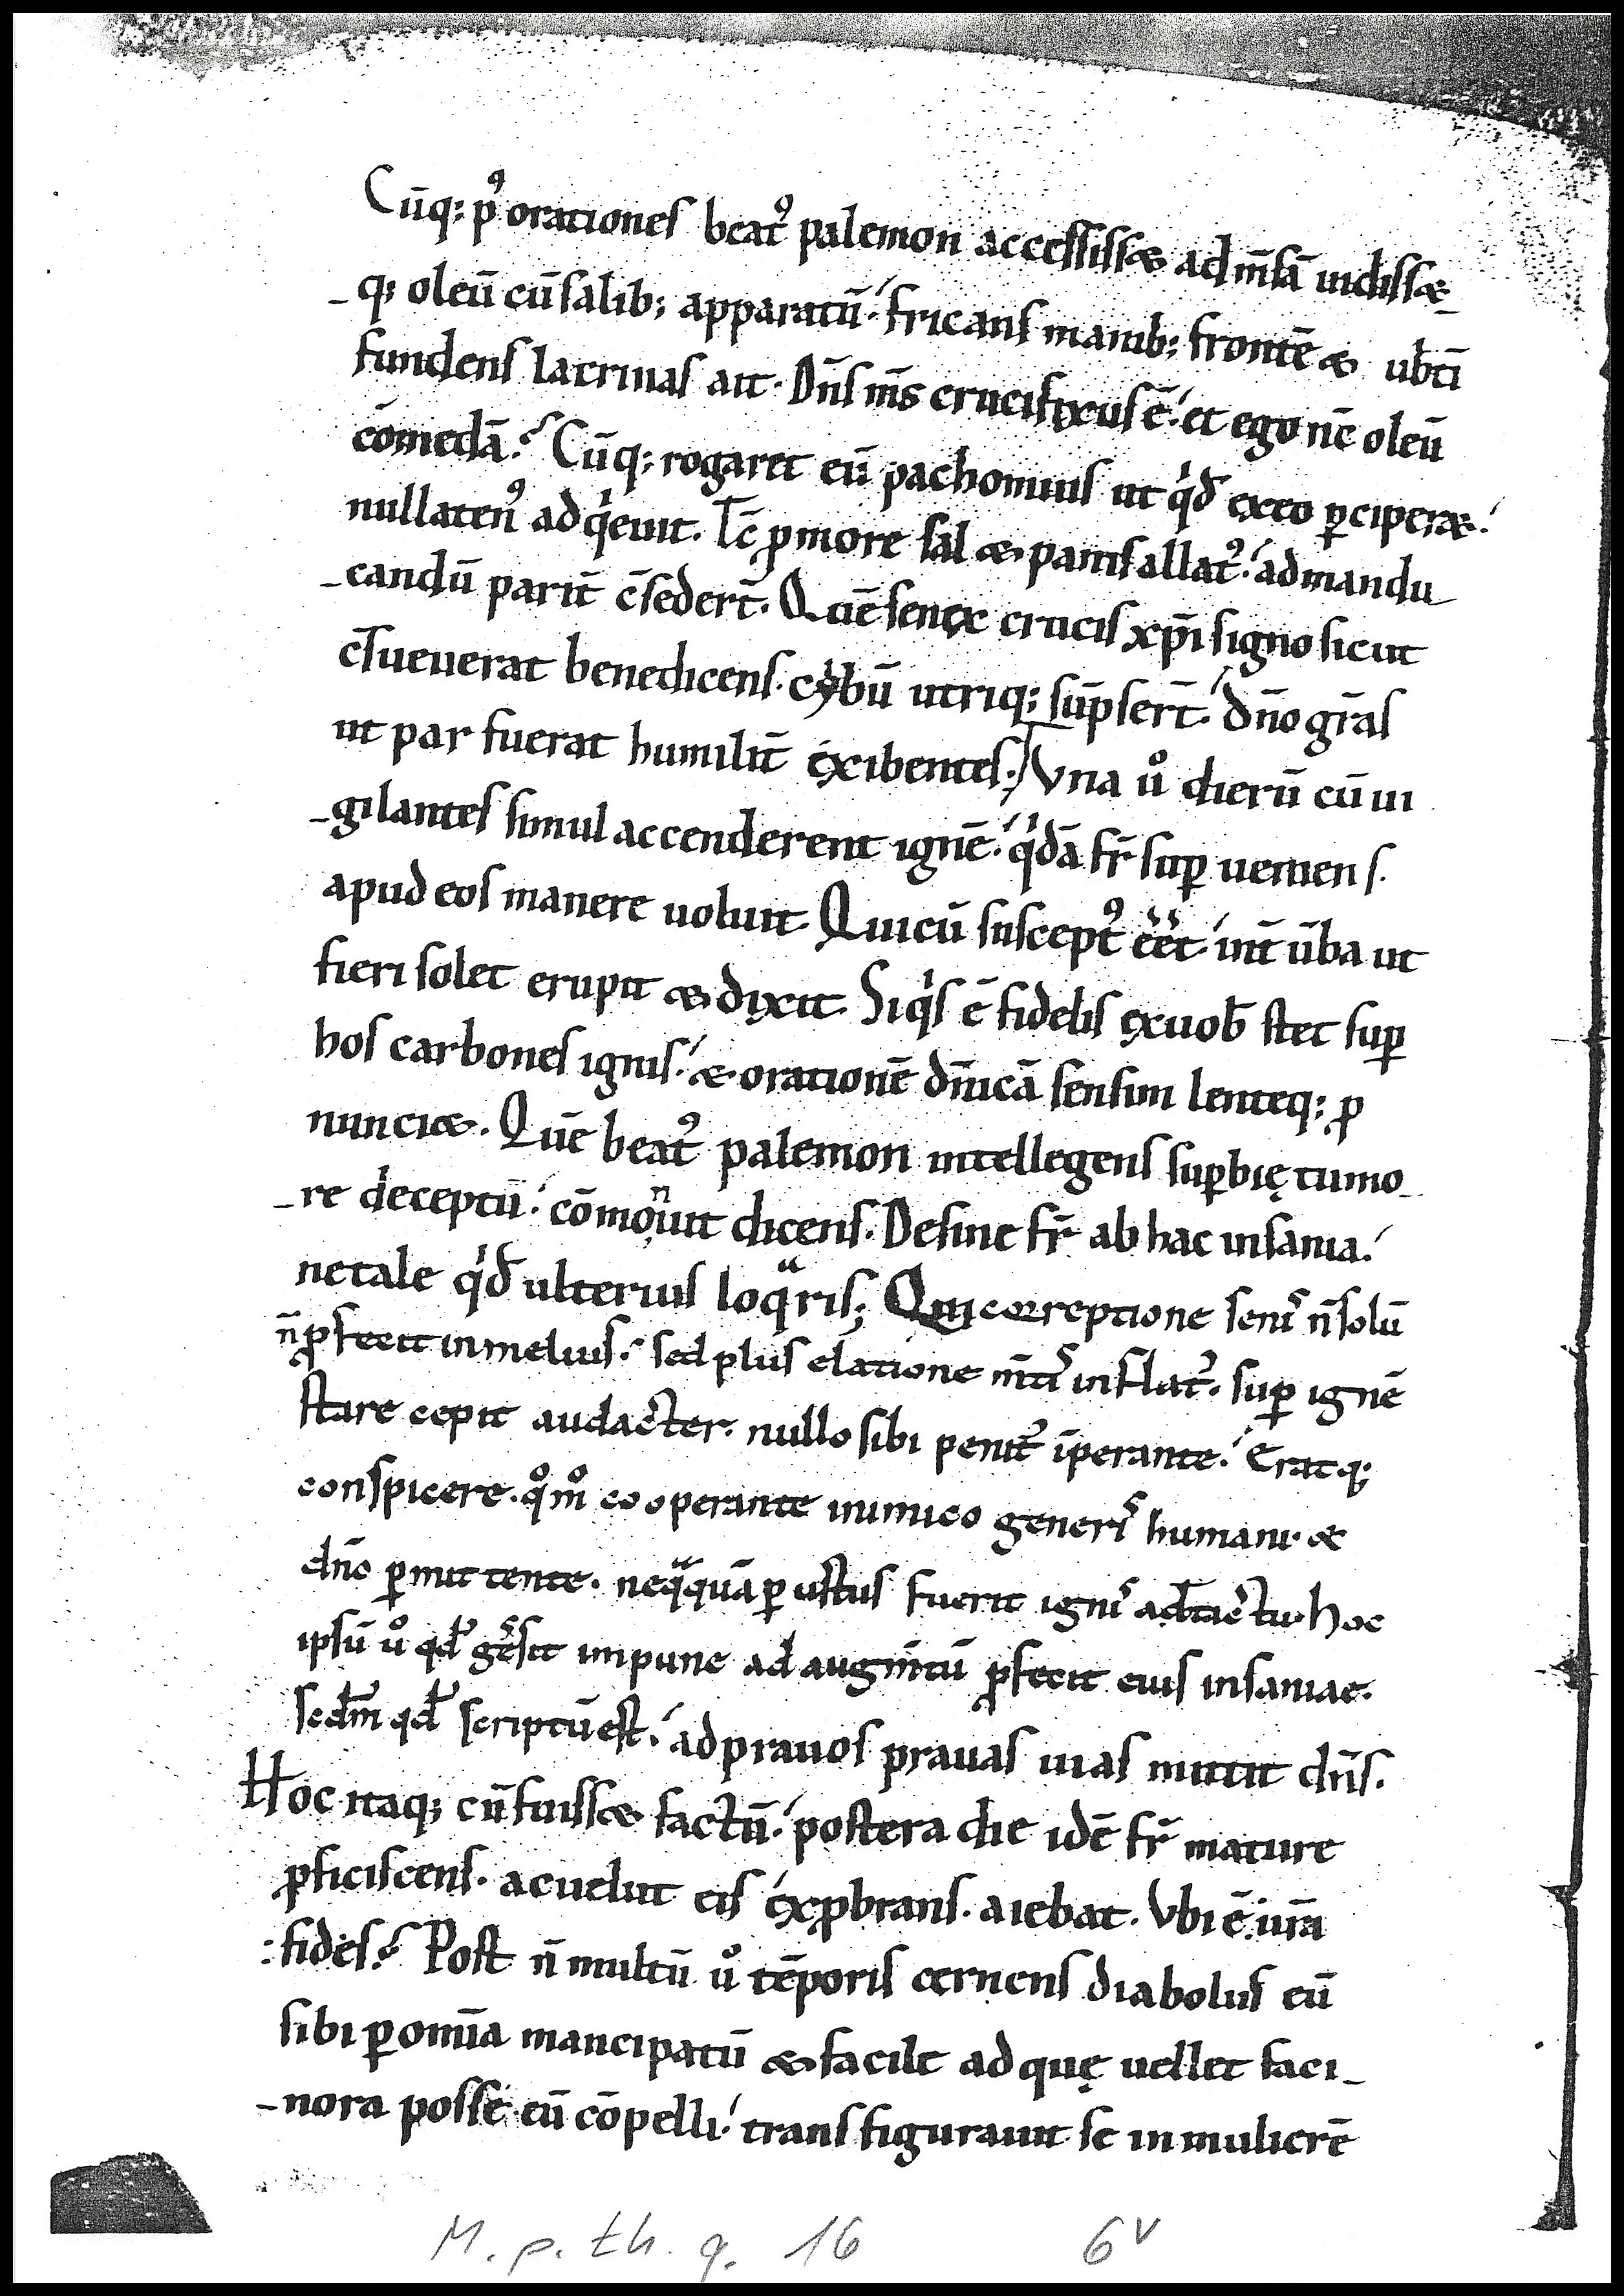 Cūq; pꝰ orationes beatꝰ palemon accessisset ad mēsā uidisset
-q; oleū cū salib; apparatū. fricans manib; frontē & ubti
fundens lacrimas ait. Dn̄s m̄s crucifixus ē. et ego nc̄ oleū
cōmedā? Cūq; rogaret eū pachomius ut qͥd ex eo ꝑciperet.
nullatenꝰ adqͥeuit. Tc̄ ꝓ more sal & panis allatꝰ. ad mandu
-candū parit̄ c̄sedert̄. Quē senex crucis xp̄i signo sicut
c̄sueuerat benedicens. cybū utriq; sūpsert̄. dn̄o gr̄as
ut par fuerat humilit̄ exibentes. Una uͦ dierū cū ui
-gilantes simul accenderent ignē. qͥdā fr̄ suꝑ ueniens.
apud eos manere uoluit. Qui cū susceptꝰ eēt. int̄ ūba ut
fieri solet erupit & dixit. Si qͥs ē fidelis ex uob̄ stet suꝑ
hos carbones ignis. & orationē dn̄icā sensim lenteq; ꝓ
nunciet. Quē beatꝰ palemon intellegens suꝑbię tumo
-re deceptū. cōmonuit dicens. Desine fr̄ ab hac insania.
ne tale qͥd ulterius loqᵃris; Qui correptione senis n̄ solū
n̄ ꝓfecit in melius. sed plus elatione m̄tis inflatꝰ. suꝑ ignē
stare cepit audacter. nullo sibi penitꝰ īperante. Eratq;
conspicere. qͦm̊ cooperante inimico generis humani. &
dn̄o ꝑmittente. neqᵃquā ꝑ ustus fuerit ignis adtactu. hoc
ipsū uͦ qd̄ gessit impune ad augm̄tū ꝓfecit eius insaniae.
sedm̄ qd̄ scriptū est. ad prauos prauas uias mittit dn̄s.
Hoc itaq; cū fuisset factū. postera die idē fr̄ mature
ꝓficiscens. ac uelut eis exꝓbrans. aiebat. Ubi ē ur̄a
fides? Post n̄ multū uͦ tēporis cernens diabolus eū
sibi ꝑ omīa mancipatū & facile ad quę uellet faci-
-nora posse eū cōpelli. transfigurauit se in mulierē
M. p. th. q. 16 6v